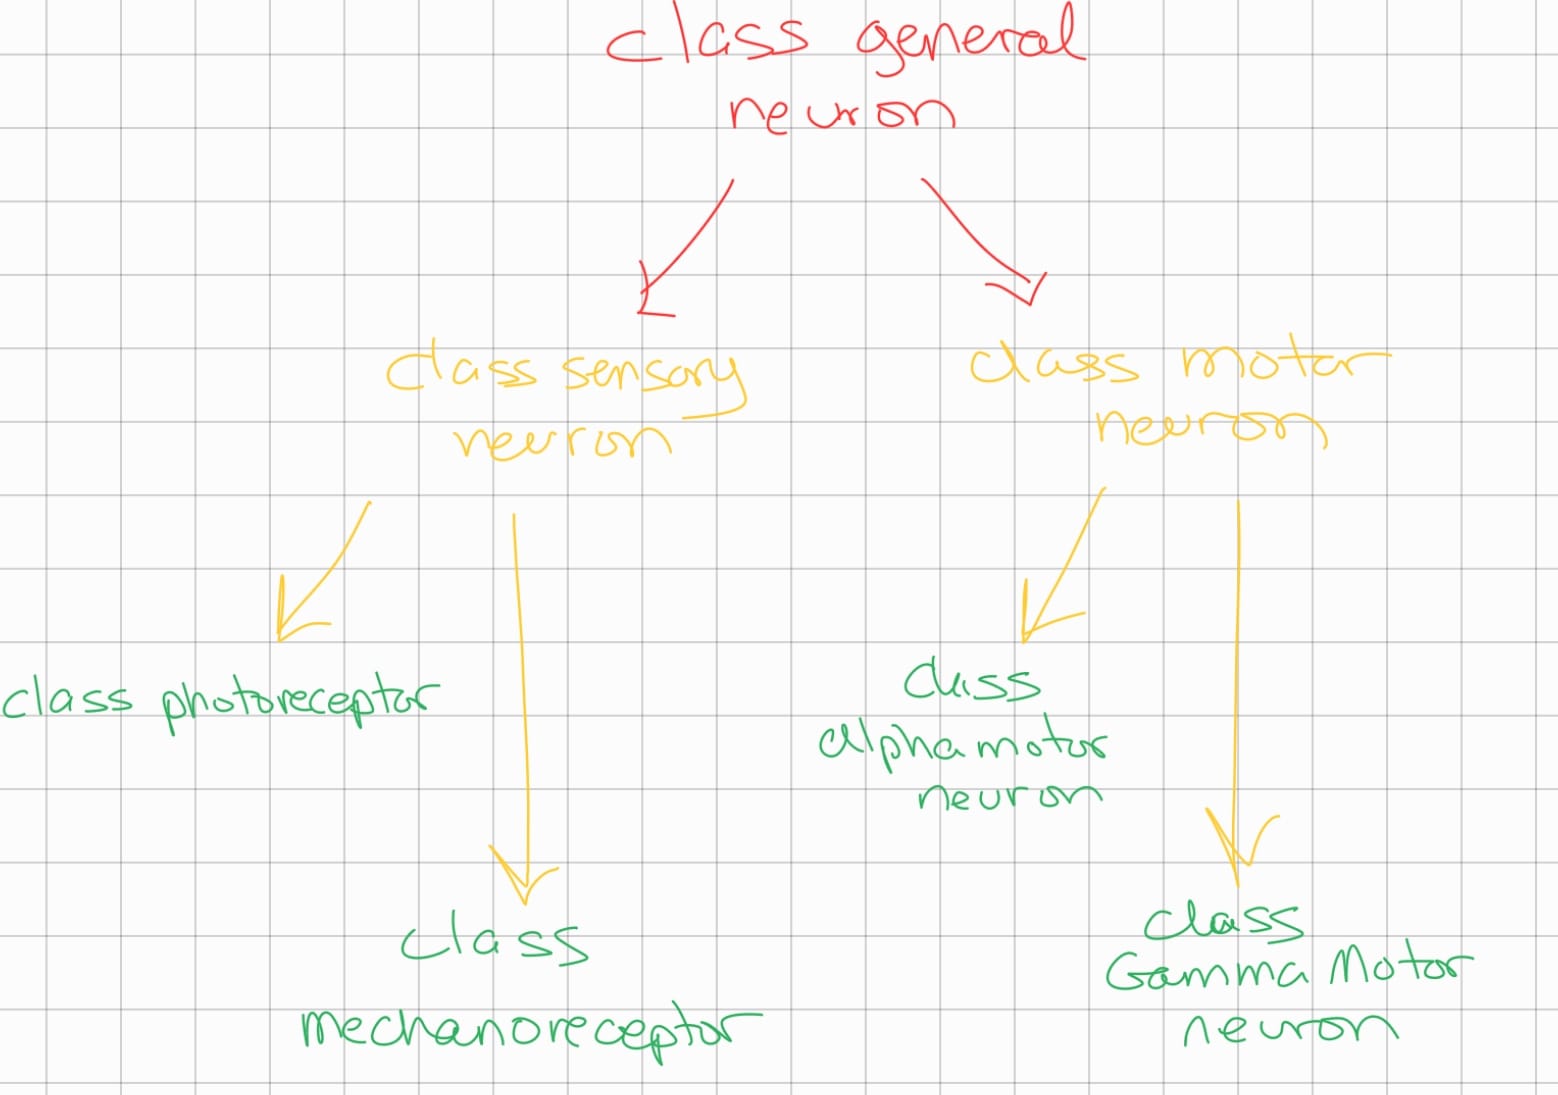 class general
neuron
class sensory
neuron
class motor
neuron
class photoreceptor
class
alpha motor
neuron
class
mechanoreceptor
class
Gamma Motor
neuron